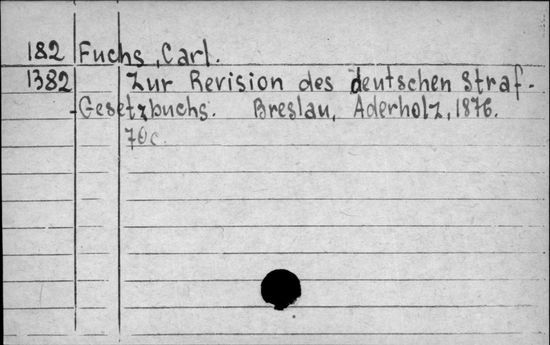 182 Fuchs, Carl.
1382 Zur Revision des deutschen Straf-
-Gesetzbuchs. Breslau, Aderholz, 1876.